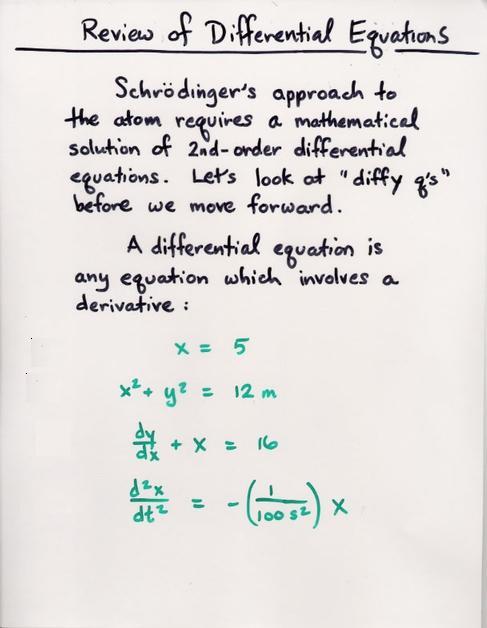 Review of Differential Equations
Schrödinger's approach to
the atom requires a mathematical
solution of 2nd-order differential
equations. Let's look at "diffy q's"
before we move forward.
A differential equation is
any equation which involves a
derivative :
x = 5
x² + y² = 12 m
dy/dx + x = 16
d²x/dt² = -(1/100 s²) x